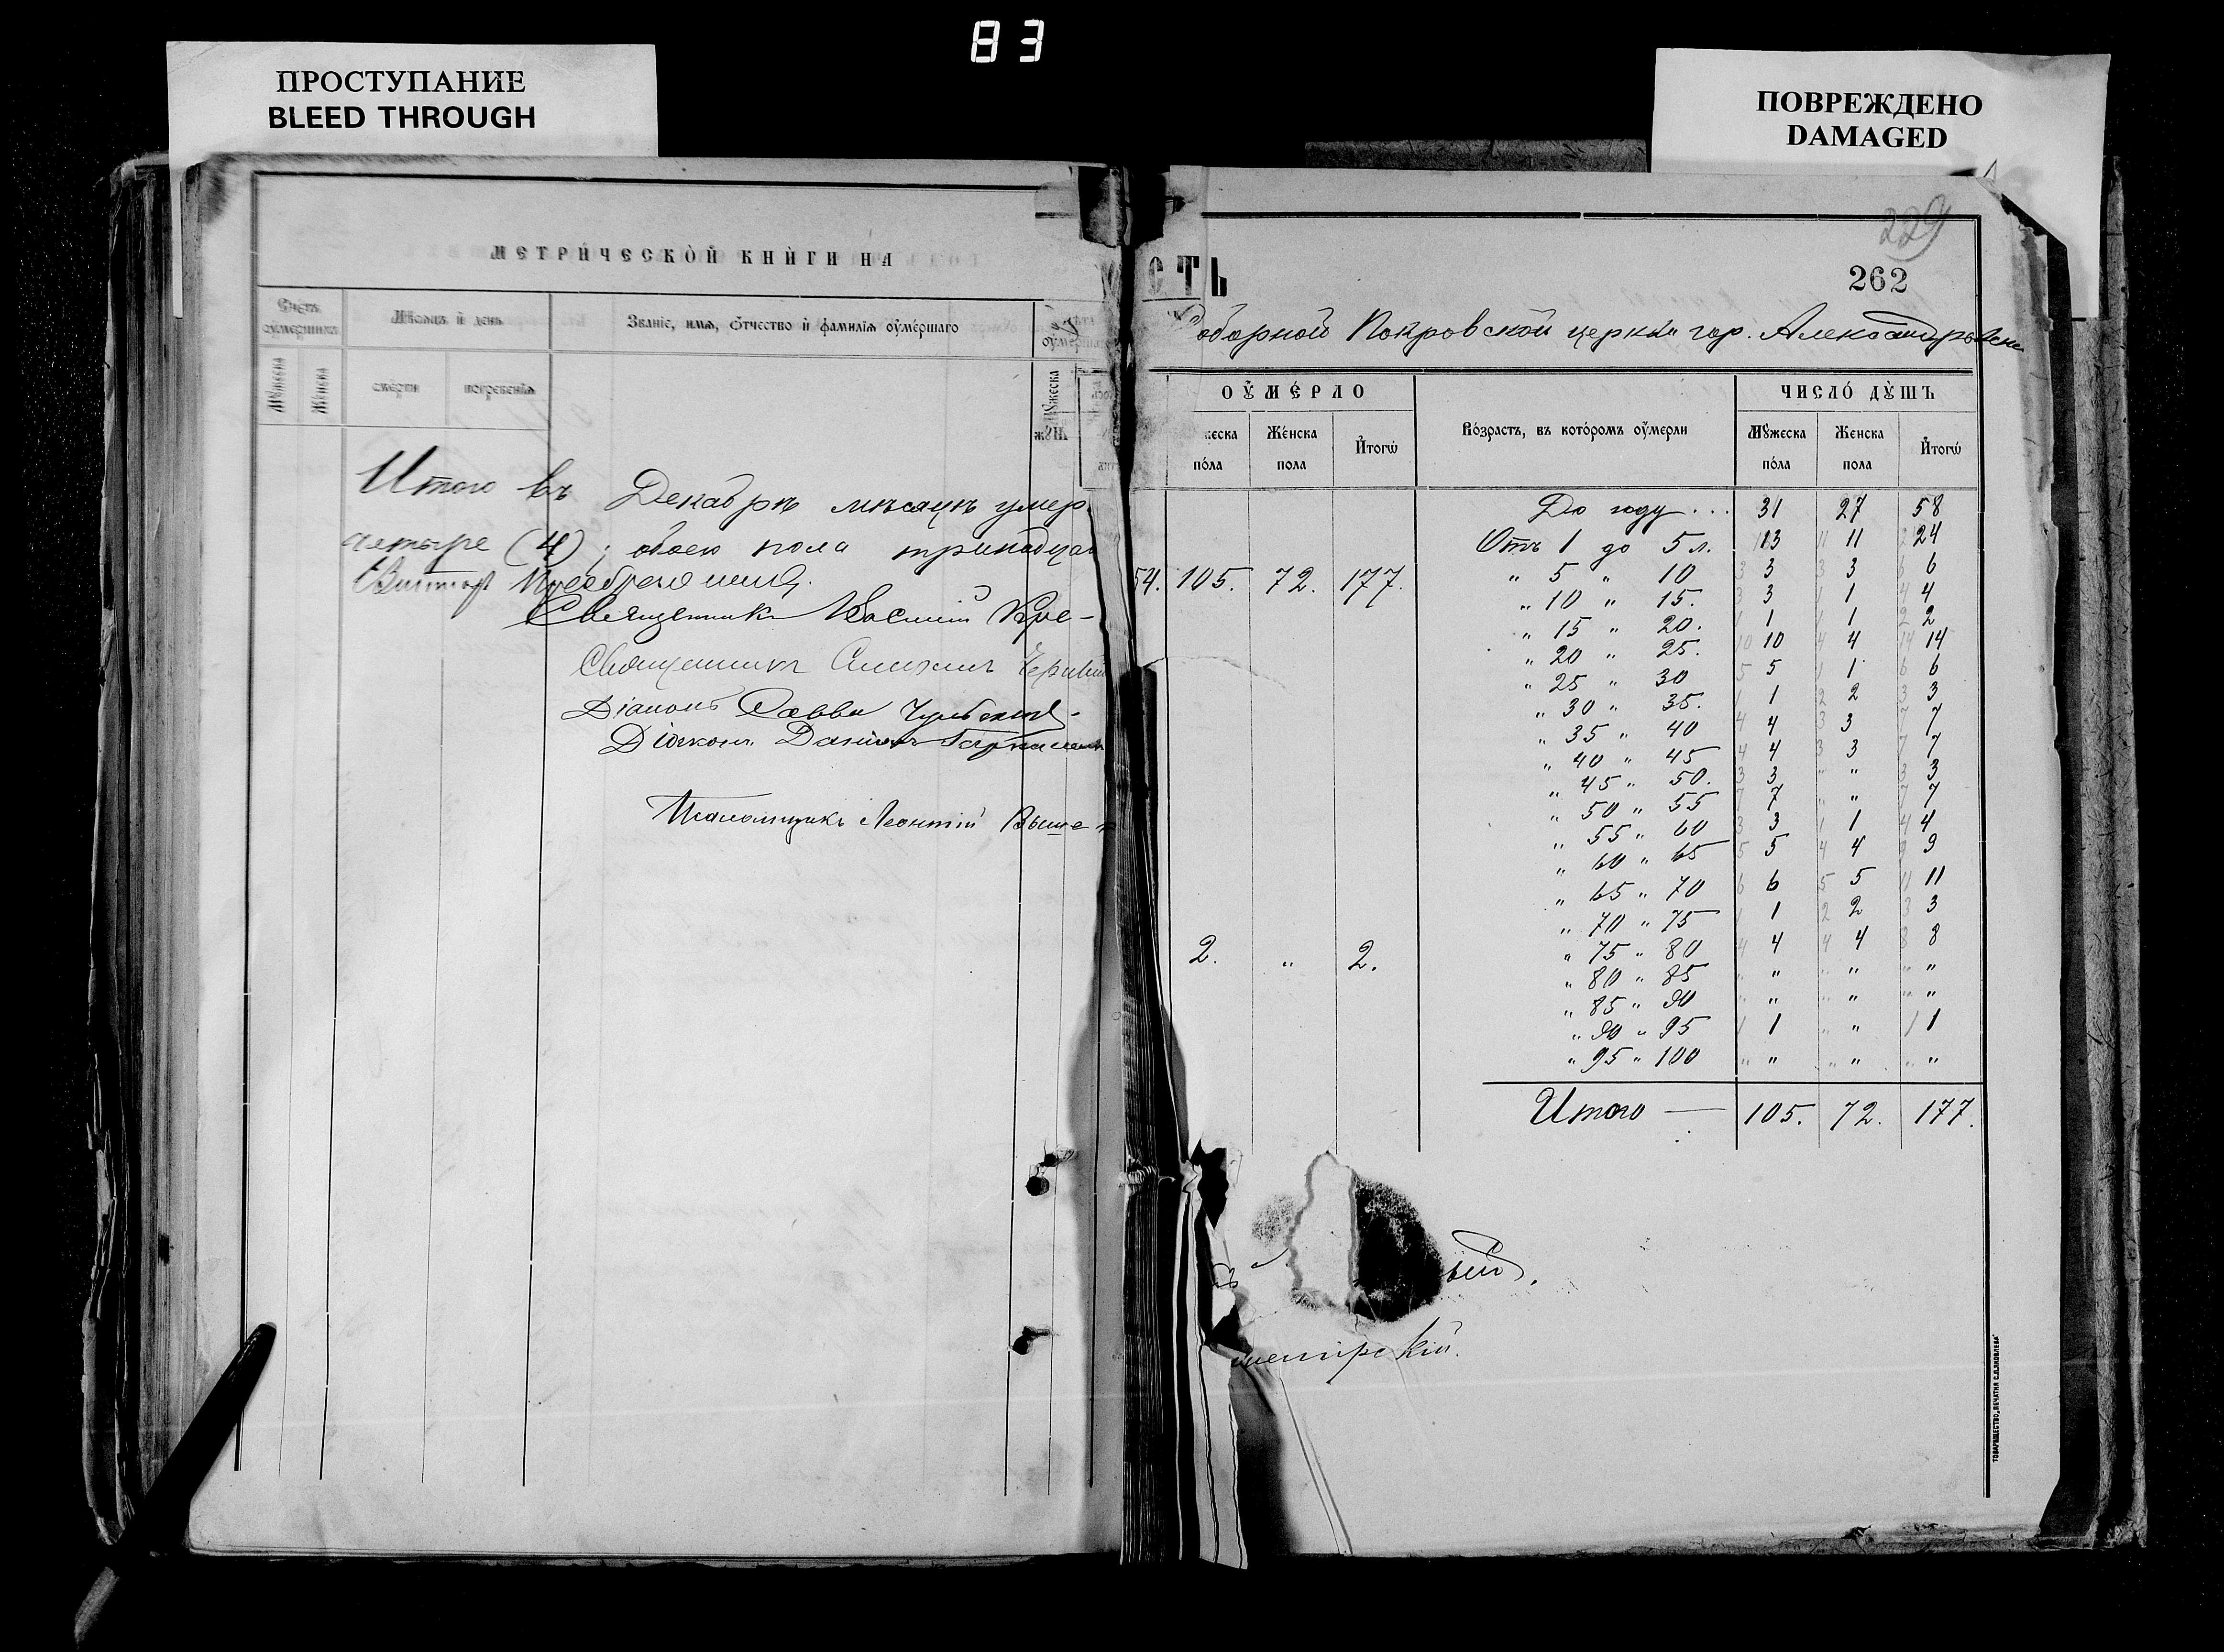 83
ПРОСТУПАНИЕ
BLEED THROUGH
ПОВРЕЖДЕНО
DAMAGED
МЕТРИ́ЧЕСКОЙ КНИ́ГИ НА
Счетъ оумершихъ
Мѣсяцъ и день
Званіе, имя, отчество и фамилія оумершаго
Мужеска
Женска
смерти
погребенія
Итого въ Декабрѣ мѣсяцѣ умер
четыре (4); обоего пола тринадца
Священникъ Василій
Священникъ
Діаконъ Савва
Діаконъ Даніилъ
Псаломщикъ Леонтій
229
262
СТЬ
Соборной Покровской церкви гор. Александровска
ОУМЕРЛО
Возрастъ, въ которомъ оумерли
ЧИСЛО ДУШЪ
жеска пола
Женска пола
Итогѡ
Мужеска пола
Женска пола
Итогѡ
До году ... 31 27 58
Отъ 1 до 5 л. 13 11 24
" 5 " 10 3 3 6
54. 105. 72. 177.
" 10 " 15. 3 1 4
" 15 " 20. 1 1 2
" 20 " 25. 10 4 14
" 25 " 30 5 1 6
" 30 " 35. 1 2 3
" 35 " 40 4 3 7
" 40 " 45 4 3 7
" 45 " 50. 3 " 3
" 50 " 55 7 " 7
" 55 " 60 3 1 4
" 60 " 65 5 4 9
" 65 " 70 6 5 11
" 70 " 75 1 2 3
" 75 " 80 4 4 8
2. " 2.
" 80 " 85 " " "
" 85 " 90 " " "
" 90 " 95 1 " 1
" 95 " 100 " " "
Итого — 105. 72. 177.
ТОВАРИЩЕСТВО „ПЕЧАТНЯ С.П.ЯКОВЛЕВА“